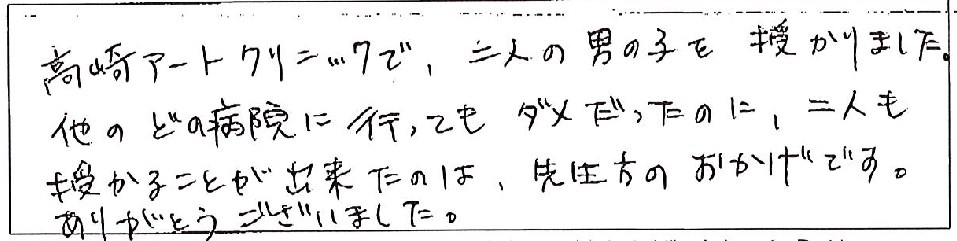 高崎アートクリニックで、二人の男の子を授かりました。
他のどの病院に行ってもダメだったのに、二人も
授かることが出来たのは、先生方のおかげです。
ありがとうございました。